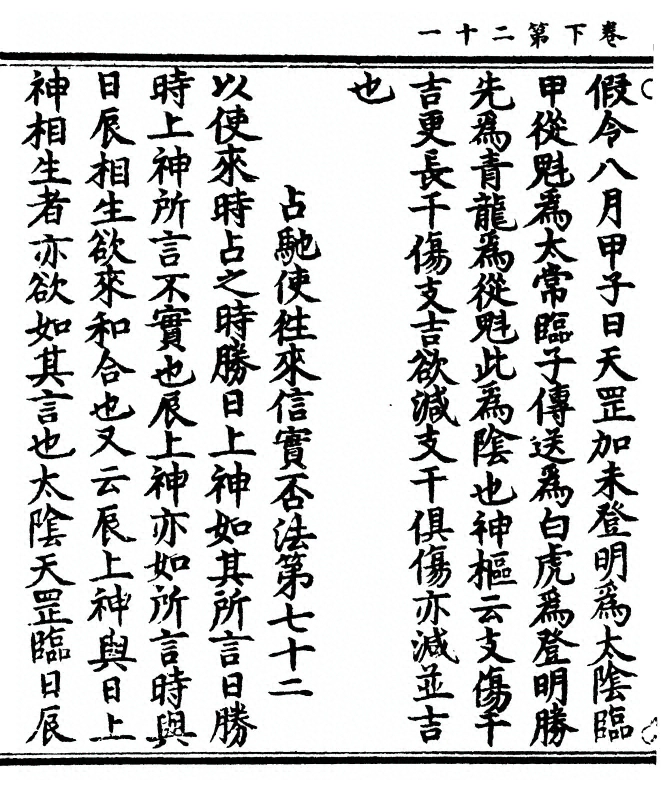 卷下第二十一
假令八月甲子日天罡加未登明為太陰臨
甲從魁為太常臨子傳送為白虎為登明勝
先為青龍為從魁此為陰也神樞云支傷干
吉更長干傷支吉欲減支干俱傷亦減並吉
也
占馳使往來信實否法第七十二
以使來時占之時勝日上神如其所言日勝
時上神所言不實也辰上神亦如所言時與
日辰相生欲來和合也又云辰上神與日上
神相生者亦欲如其言也太陰天罡臨日辰